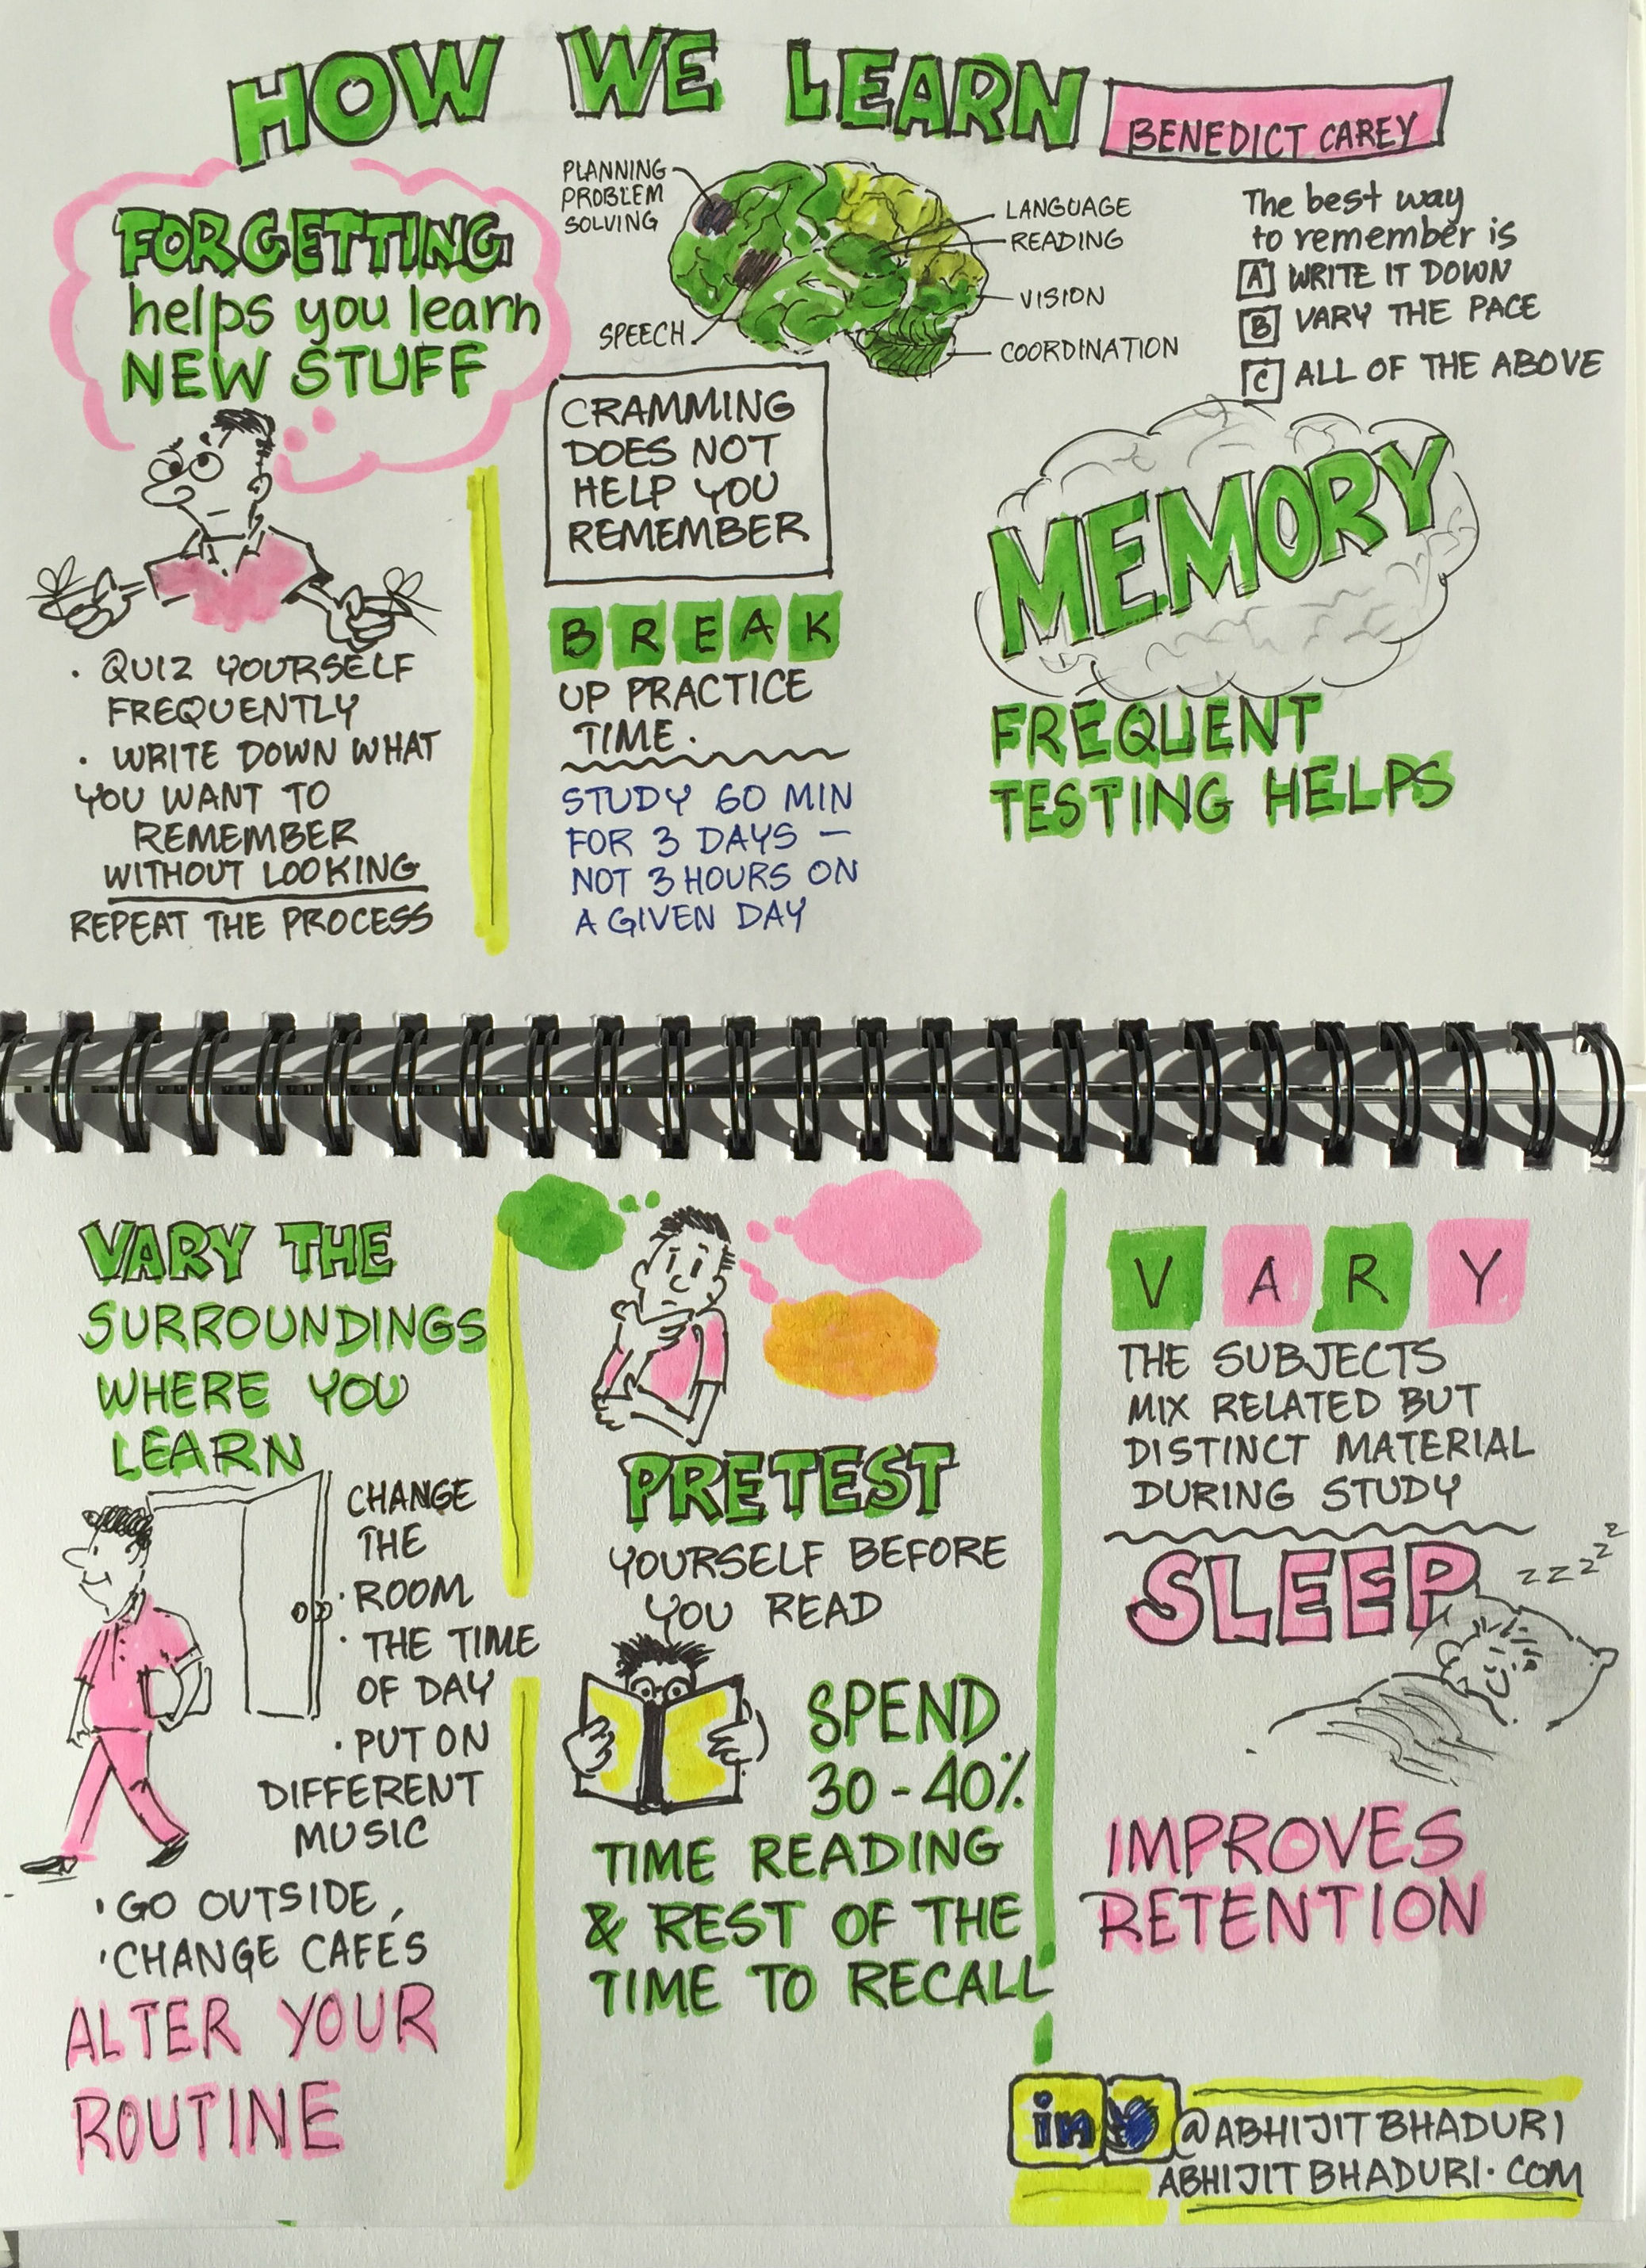 HOW WE LEARN
BENEDICT CAREY
FORGETTING
helps you learn
NEW STUFF
· QUIZ YOURSELF
FREQUENTLY
· WRITE DOWN WHAT
YOU WANT TO
REMEMBER
WITHOUT LOOKING
REPEAT THE PROCESS
PLANNING
PROBLEM
SOLVING
SPEECH
LANGUAGE
READING
VISION
COORDINATION
CRAMMING
DOES NOT
HELP YOU
REMEMBER
BREAK
UP PRACTICE
TIME.
STUDY 60 MIN
FOR 3 DAYS —
NOT 3 HOURS ON
A GIVEN DAY
The best way
to remember is
A WRITE IT DOWN
B VARY THE PACE
C ALL OF THE ABOVE
MEMORY
FREQUENT
TESTING HELPS
VARY THE
SURROUNDINGS
WHERE YOU
LEARN
CHANGE
THE
· ROOM
· THE TIME
OF DAY
· PUT ON
DIFFERENT
MUSIC
· GO OUTSIDE,
· CHANGE CAFES
ALTER YOUR
ROUTINE
PRETEST
YOURSELF BEFORE
YOU READ
SPEND
30 - 40%
TIME READING
& REST OF THE
TIME TO RECALL
VARY
THE SUBJECTS
MIX RELATED BUT
DISTINCT MATERIAL
DURING STUDY
SLEEP
zzzzz
IMPROVES
RETENTION
in @ABHIJITBHADURI
ABHIJITBHADURI.COM